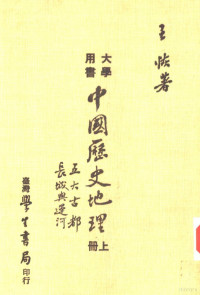 王恢著
大學
用書
中國歷史地理
上冊
五大古都
長城與運河
臺灣學生書局印行